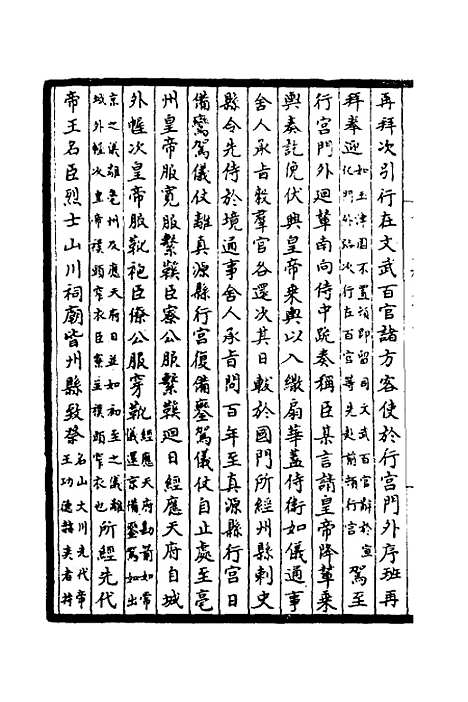 再拜次引行在文武百官諸方客使於行宮門外序班再
拜奉迎如玉津園不置頓即留司文武百官辭於宣化門外路次行在百官等先赴前頓行宮駕至
行宮門外迴輦南向侍中跪奏稱臣某言請皇帝降輦乘
輿奏訖俛伏興皇帝乘輿以入繖扇華蓋侍衛如儀通事
舍人承旨敕羣官各還次其日較於國門所經州縣刺史
縣令先侍於境通事舍人承旨問百年至真源縣行宮日
備鸞駕儀仗離真源縣行宮復備鑾駕儀仗自止處至亳
州皇帝服寬服繫鞵臣寮公服繫鞵迴日經應天府自城
外幄次皇帝服靴袍臣僚公服穿靴經應天府勘前如常儀還京備鑾駕如出
京之儀離亳州及應天府日並如初至之儀離城外幄次皇帝襆頭窄衣臣寮並襆頭窄衣也所經先代
帝王名臣烈士山川祠廟皆州縣致祭名山大川先代帝王功德者并